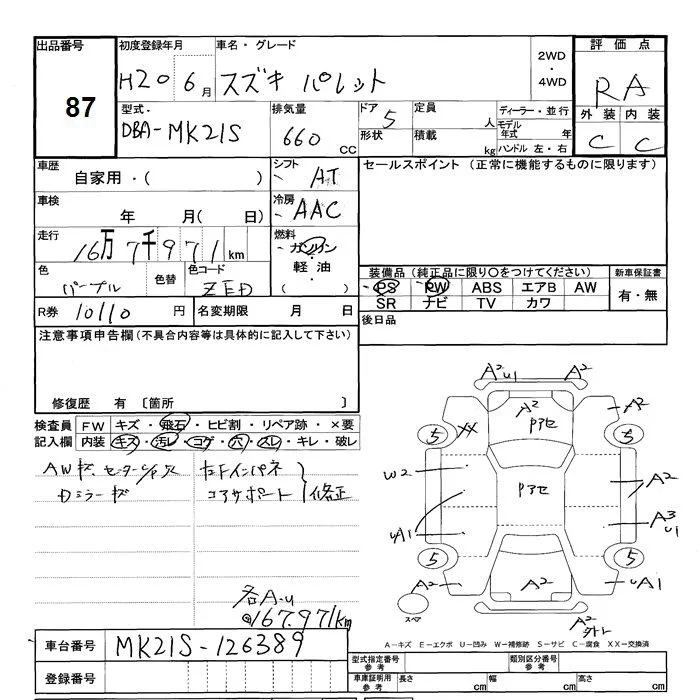 出品番号
87
初度登録年月
H20 6月
車名・グレード
スズキ パレット
2WD
・
4WD
評価点
RA
型式・
DBA-MK21S
排気量
660 CC
ドア 5
形状
定員 人
積載 kg
ディーラー・並行
モデル年式 年
ハンドル 左・右
外装 内装
C C
車歴
自家用・( )
シフト
AT
セールスポイント (正常に機能するものに限ります)
車検
年 月( 日)
冷房
AAC
走行
16万7千971km
燃料
ガソリン
・
軽油
・
( )
色
パープル
色替
色コード
ZED
装備品 (純正品に限り〇をつけてください)
PS PW ABS エアB AW
SR ナビ TV カワ
新車保証書
有・無
R券 10110 円
名変期限 月 日
後日品
注意事項申告欄 (不具合内容等は具体的に記入して下さい)
修復歴 有 〔箇所 〕
検査員記入欄
FW キズ・飛石・ヒビ割・リペア跡・×要
内装 キズ・汚レ・コゲ・穴・スレ・キレ・破レ
左Fインパネ
コアサポート 修正
各A-U
167.971km
A2 U1 A2
A2 A2
XX
5 5
W2
A2
UA1
A3 U1
5 5
A2 A2 UA1
A2
スペア
A-キズ E-エクボ U-凹み W-補修跡 S-サビ C-腐食 XX-交換済
車台番号
MK21S-126389
登録番号
型式指定番号 参考
類別区分番号 参考
車庫証明用 参考
長さ cm
幅 cm
高さ cm